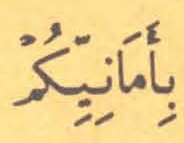 بِأَمَانِيِّكُمْ